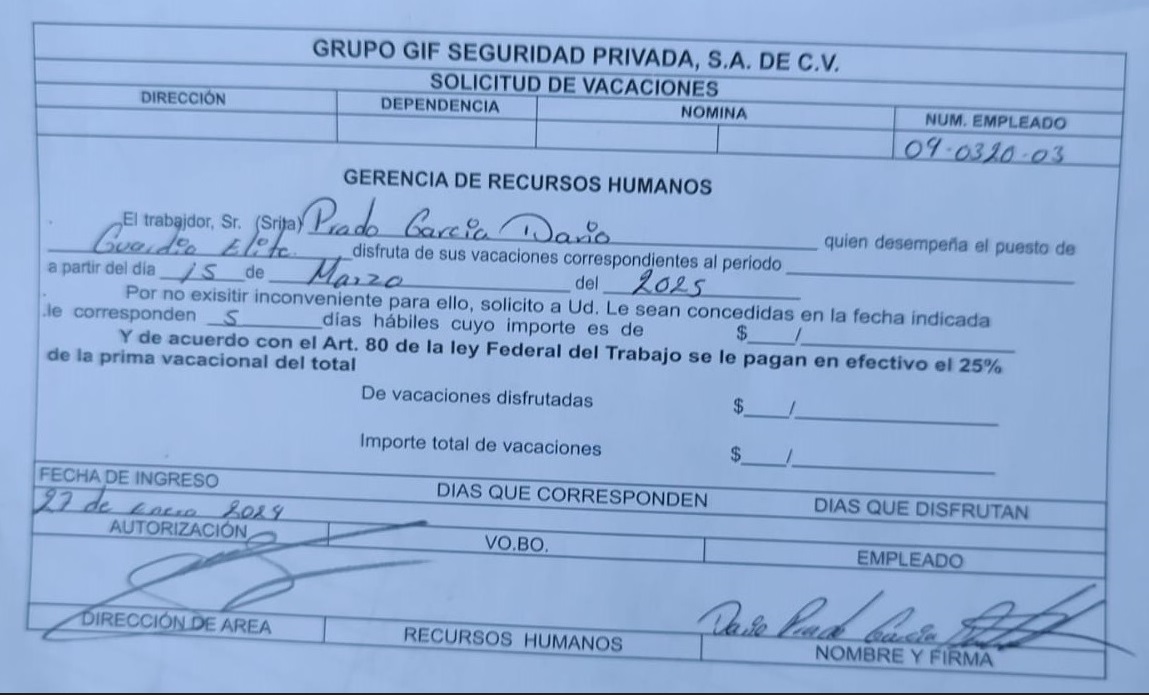 GRUPO GIF SEGURIDAD PRIVADA, S.A. DE C.V.
SOLICITUD DE VACACIONES
DIRECCIÓN DEPENDENCIA NOMINA NUM. EMPLEADO
09-0320-03
GERENCIA DE RECURSOS HUMANOS
El trabajdor, Sr. (Srita) Prado García Darío quien desempeña el puesto de
Guardia Elite. disfruta de sus vacaciones correspondientes al periodo
a partir del día 15 de Marzo del 2025
Por no exisitir inconveniente para ello, solicito a Ud. Le sean concedidas en la fecha indicada
.le corresponden 5 días hábiles cuyo importe es de $ /
Y de acuerdo con el Art. 80 de la ley Federal del Trabajo se le pagan en efectivo el 25%
de la prima vacacional del total
De vacaciones disfrutadas $ /
Importe total de vacaciones $ /
FECHA DE INGRESO DIAS QUE CORRESPONDEN DIAS QUE DISFRUTAN
27 de enero 2024
AUTORIZACIÓN VO.BO. EMPLEADO
Dario Prado García
DIRECCIÓN DE AREA RECURSOS HUMANOS NOMBRE Y FIRMA